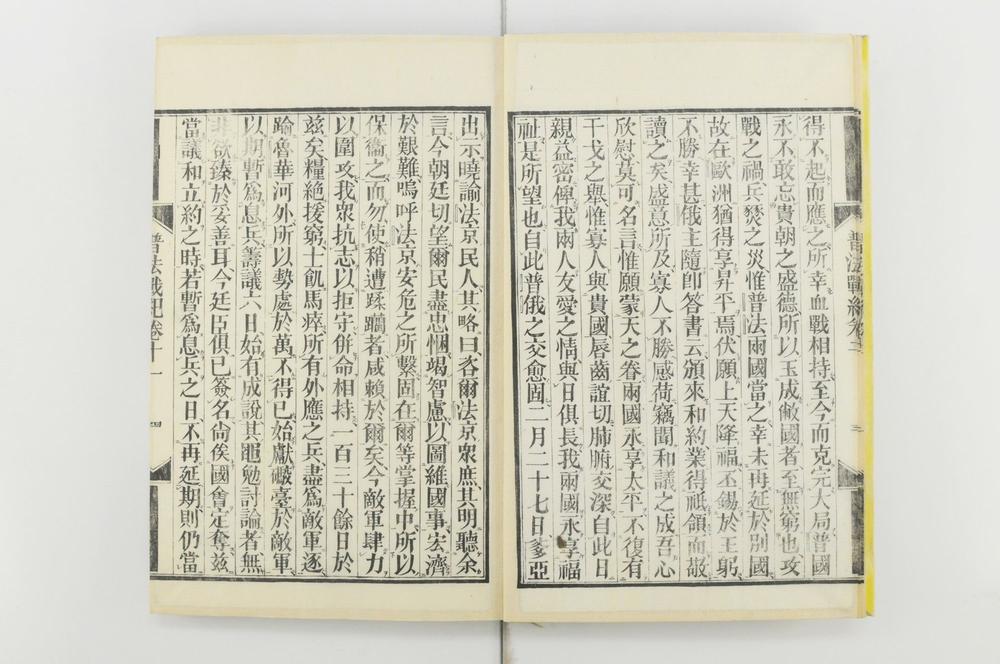 得不起而應之所幸血戰相持至今而克完大局普國
永不敢忘貴朝之盛德所以玉成敝國者至無窮也攻
戰之禍兵燹之災惟普法兩國當之幸未再延於別國
故在歐洲猶得享昇平焉伏願上天降福丕錫於王躬
不勝幸甚俄主隨即答書云頒來和約業得祇領而敬
讀之矣盛意所及寡人不勝感荷竊聞和議之成吾心
欣慰莫可名言惟願蒙天之眷兩國永享太平不復有
干戈之舉惟寡人與貴國唇齒誼切肺腑交深自此日
親益密俾我兩人友愛之情與日俱長我兩國永享福
祉是所望也自此普俄之交愈固二月二十七日爹亞
普法戰紀卷十一
二
出示曉諭法京民人其略曰咨爾法京衆庶其明聽余
言今朝廷切望爾民盡忠悃竭智慮以圖維國事宏濟
於艱難嗚呼法京安危之所繫固在爾等掌握中所以
保衞之而勿使稍遭蹂躪者咸賴於爾矣今敵軍肆力
以圍攻我衆抗志以拒守併命相持一百三十餘日於
茲矣糧絶援窮士飢馬瘁所有外應之兵盡爲敵軍逐
踰魯華河外所以勢處於萬不得已始獻礮臺於敵軍
以期暫爲息兵籌議六日始有成說其黽勉討論者無
非欲臻於妥善耳今廷臣俱已簽名尙俟國會定奪茲
當議和立約之時若暫爲息兵之日不再延期則仍當
普法戰紀卷十一